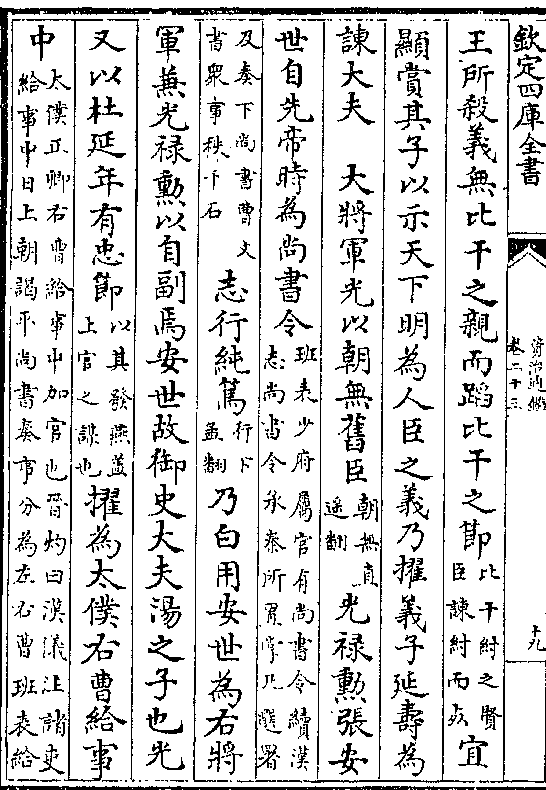 欽定四庫全書
資治通鑑
卷二十三
十九
王所殺義無比干之親而蹈比干之節比干紂之賢臣諫紂而死宜
顯賞其子以示天下明為人臣之義乃擢義子延壽為
諫大夫　大將軍光以朝無舊臣朝無直遥翻光禄勲張安
世自先帝時為尚書令班表少府屬官有尚書令續漢志尚書令承秦所置掌凡選署
及奏下尚書曹文書衆事秩千石志行純篤行下孟翻乃白用安世為右將
軍兼光禄勲以自副焉安世故御史大夫湯之子也光
又以杜延年有忠節以其發燕蓋上官之謀也擢為太僕右曹給事
中太僕正卿右曹給事中加官也晋灼曰漢儀注諸吏給事中日上朝謁平尚書奏事分為左右曹班表給